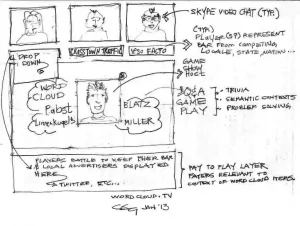 SKYPE VIDEO CHAT (TYP.)
(TYP.)
PLAYER(S) REPRESENT
BAR FROM COMPETING
LOCALE, STATE, NATION...
IPSO FACTO
DROP
DOWN
GAME
SHOW
HOST
WORD
CLOUD
Pabst
Linenkugel's
BLATZ
MILLER
Q&A
GAME
PLAY
- TRIVIA
- SEMANTIC CONTEXTS
- PROBLEM SOLVING
PLAYERS BATTLE TO KEEP THEIR BAR
& LOCAL ADVERTISERS DISPLAYED
HERE
TWITTER, ETC...
PAY TO PLAY LATER
PAYERS RELEVANT TO
CONTEXT OF WORD CLOUD ITEMS.
WORDCLOUD.TV
JAN '13